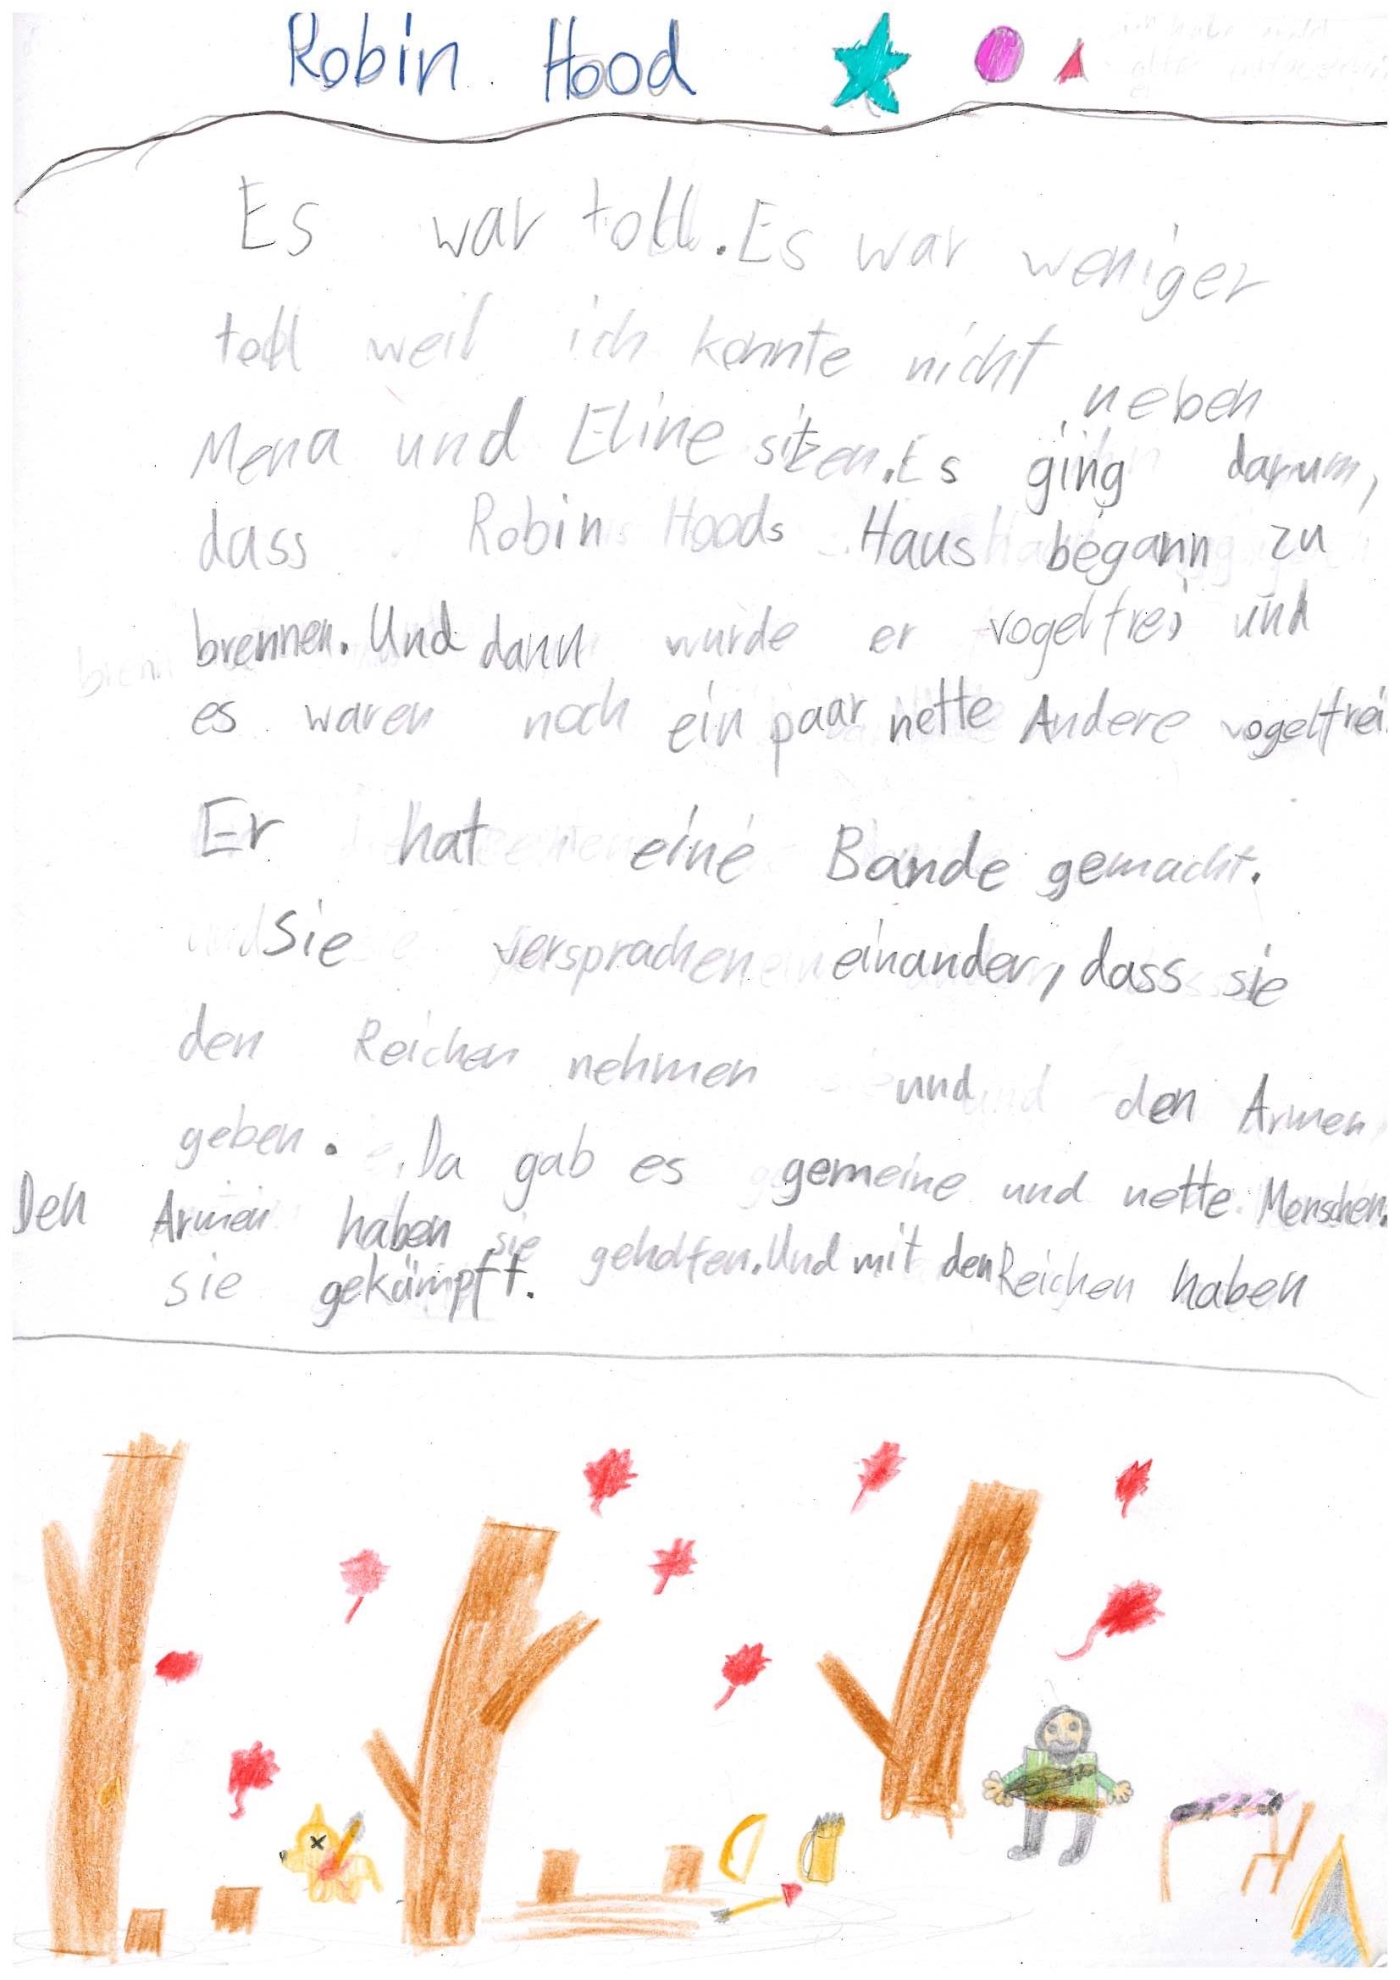 Robin Hood
Es war toll. Es war weniger
toll weil ich konnte nicht neben
Mena und Eline sitzen. Es ging darum,
dass Robin Hoods Haus begann zu
brennen. Und dann wurde er vogelfrei und
es waren noch ein paar nette Andere vogelfrei.
Er hat eine Bande gemacht.
Sie versprachen einander, dass sie
den Reichen nehmen und den Armen
geben. Da gab es gemeine und nette Menschen.
Den Armen haben sie geholfen. Und mit den Reichen haben
sie gekämpft.